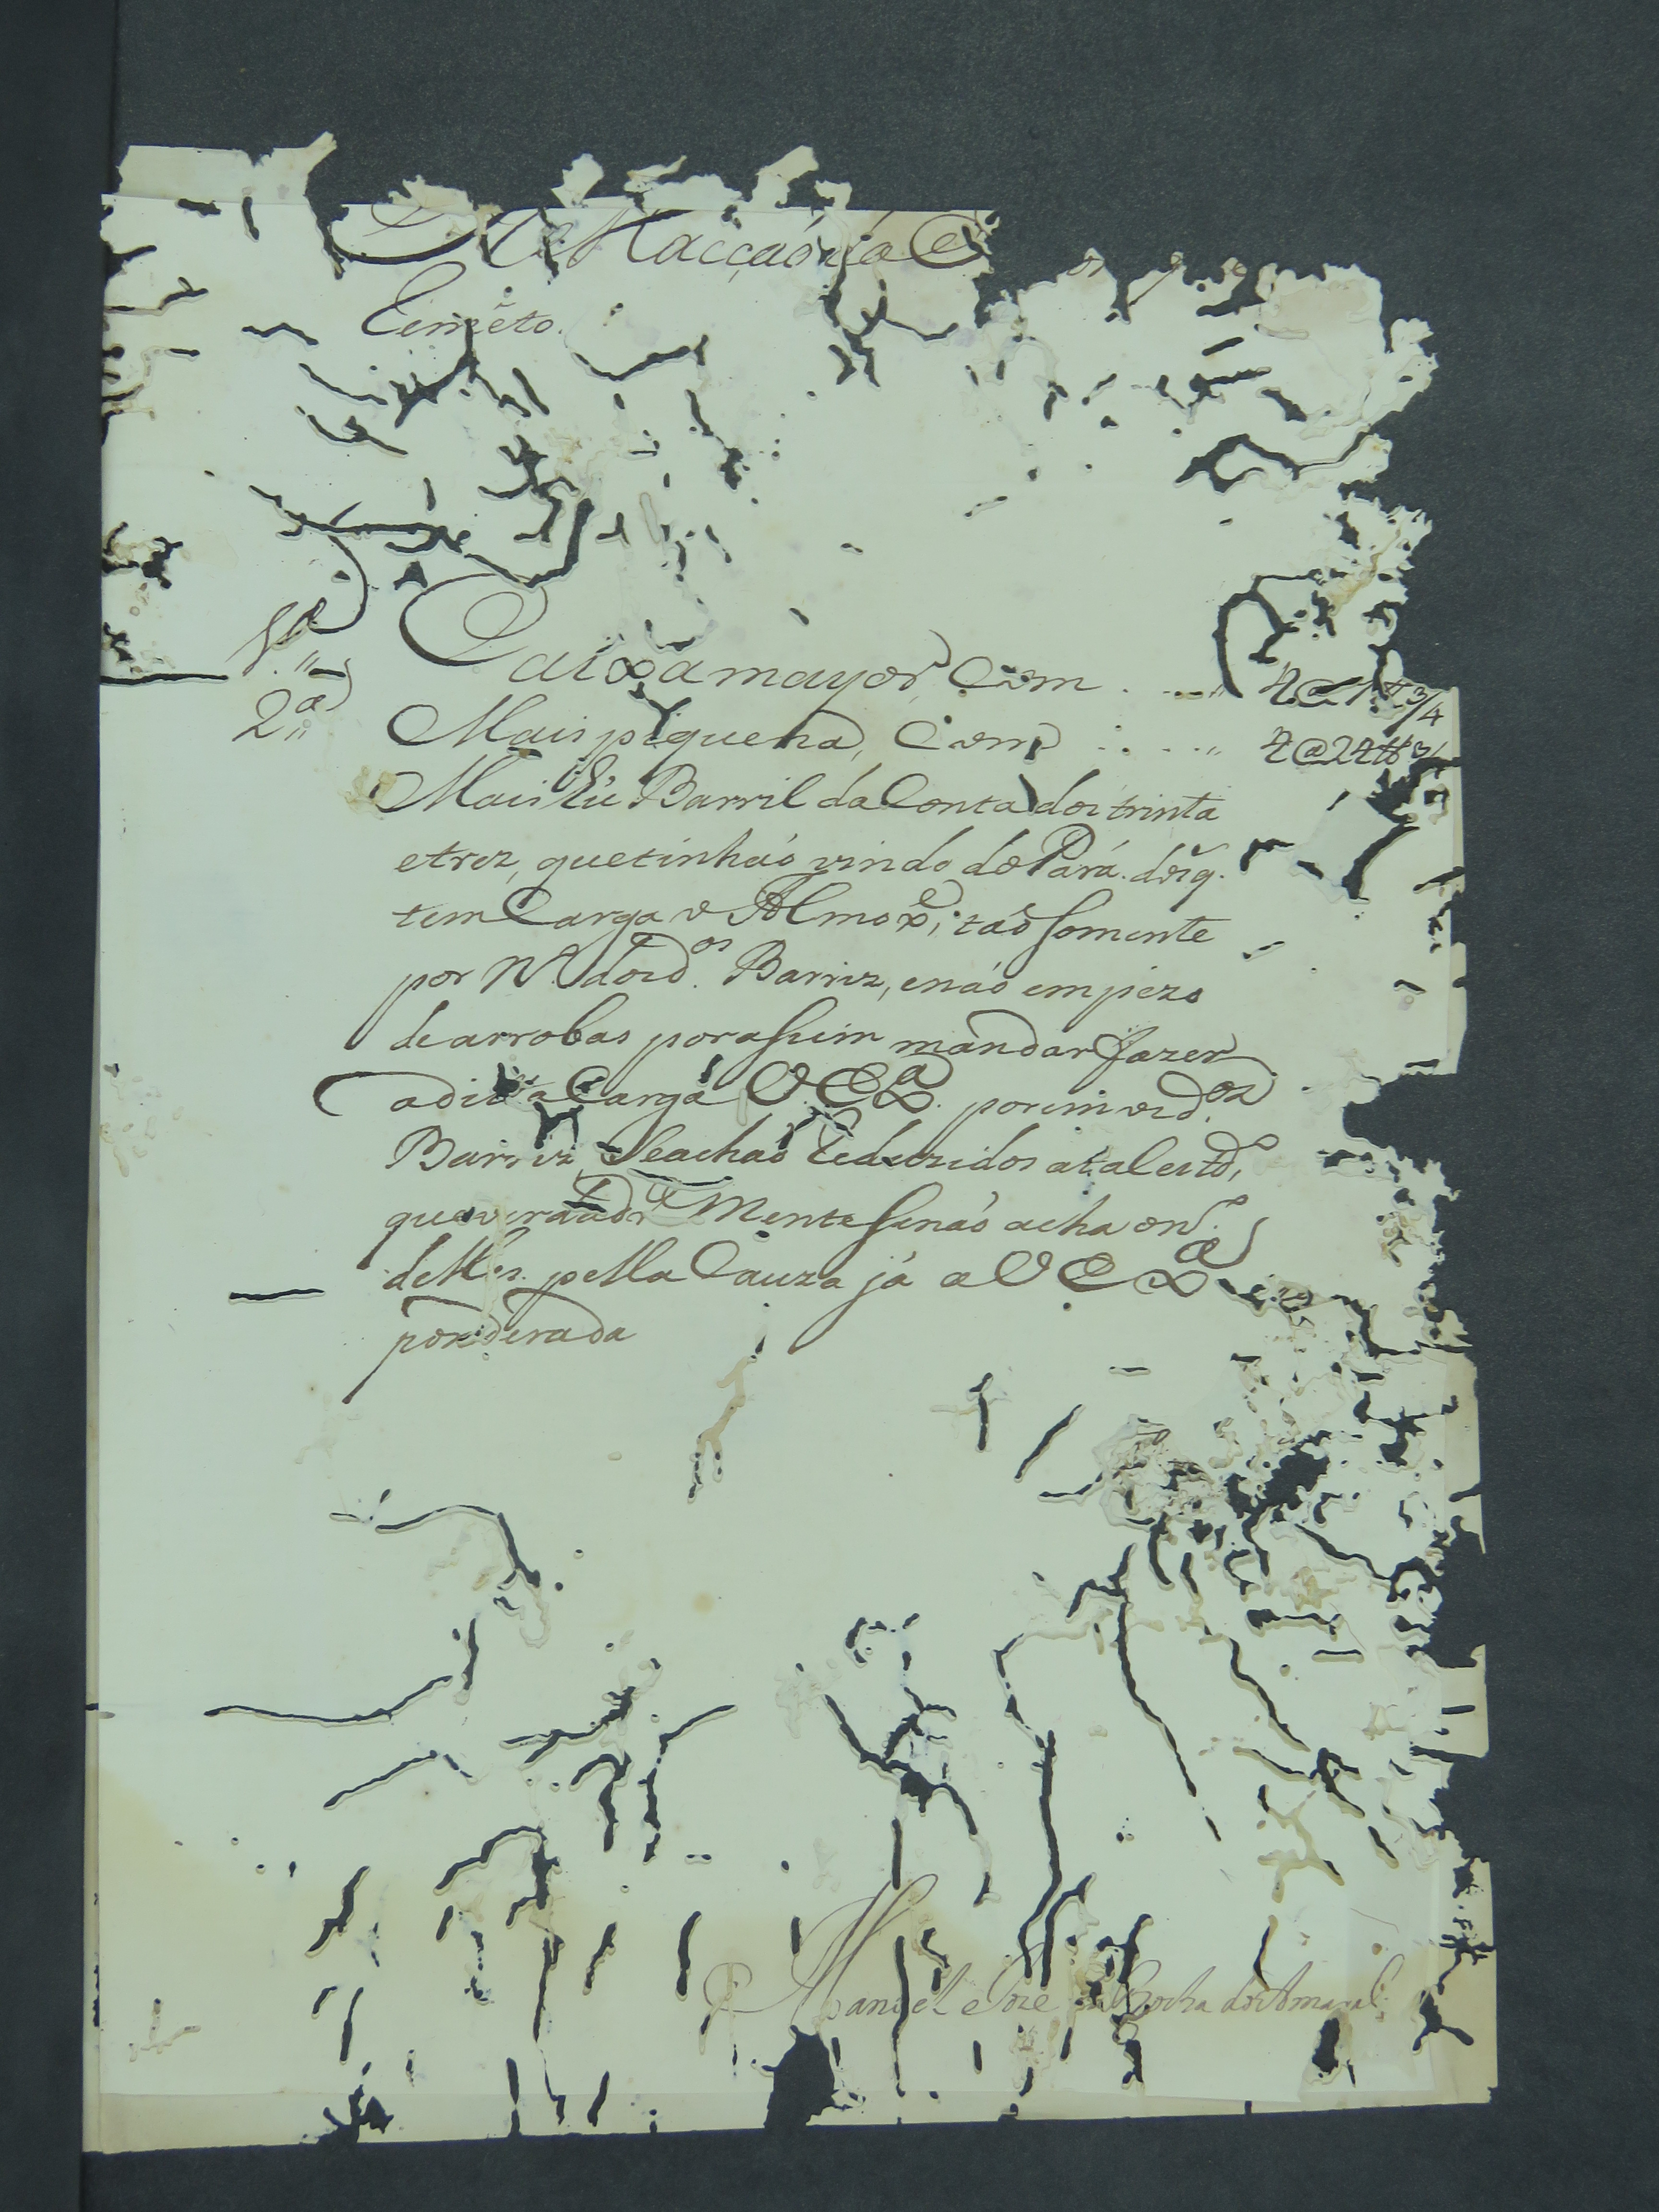 Rellaçaõ da
Remeto.
1.ª Caixa mayor, Com .... 4@1 ₶ 3/4
2.ª Mais piquena, Com .... 4@24₶ 3/4
Mais hũ Barril da Conta dos trinta
e trez, que tinhaõ vindo do Pará. dos q.
tem Carga o Almox.e, taõ somente
por N.º dos d.os Barriz, e naõ em pezo
de arrobas por assim mandar fazer
a dita Carga V. Ex.ª porem os d.os
Barriz Se achaõ Reduzidos a tal est.do,
que verdadr.ª Mente se naõ acha on.º
delles. pella Cauza já a V Ex.ª
ponderada
Manoel Joze da Rocha do Amaral